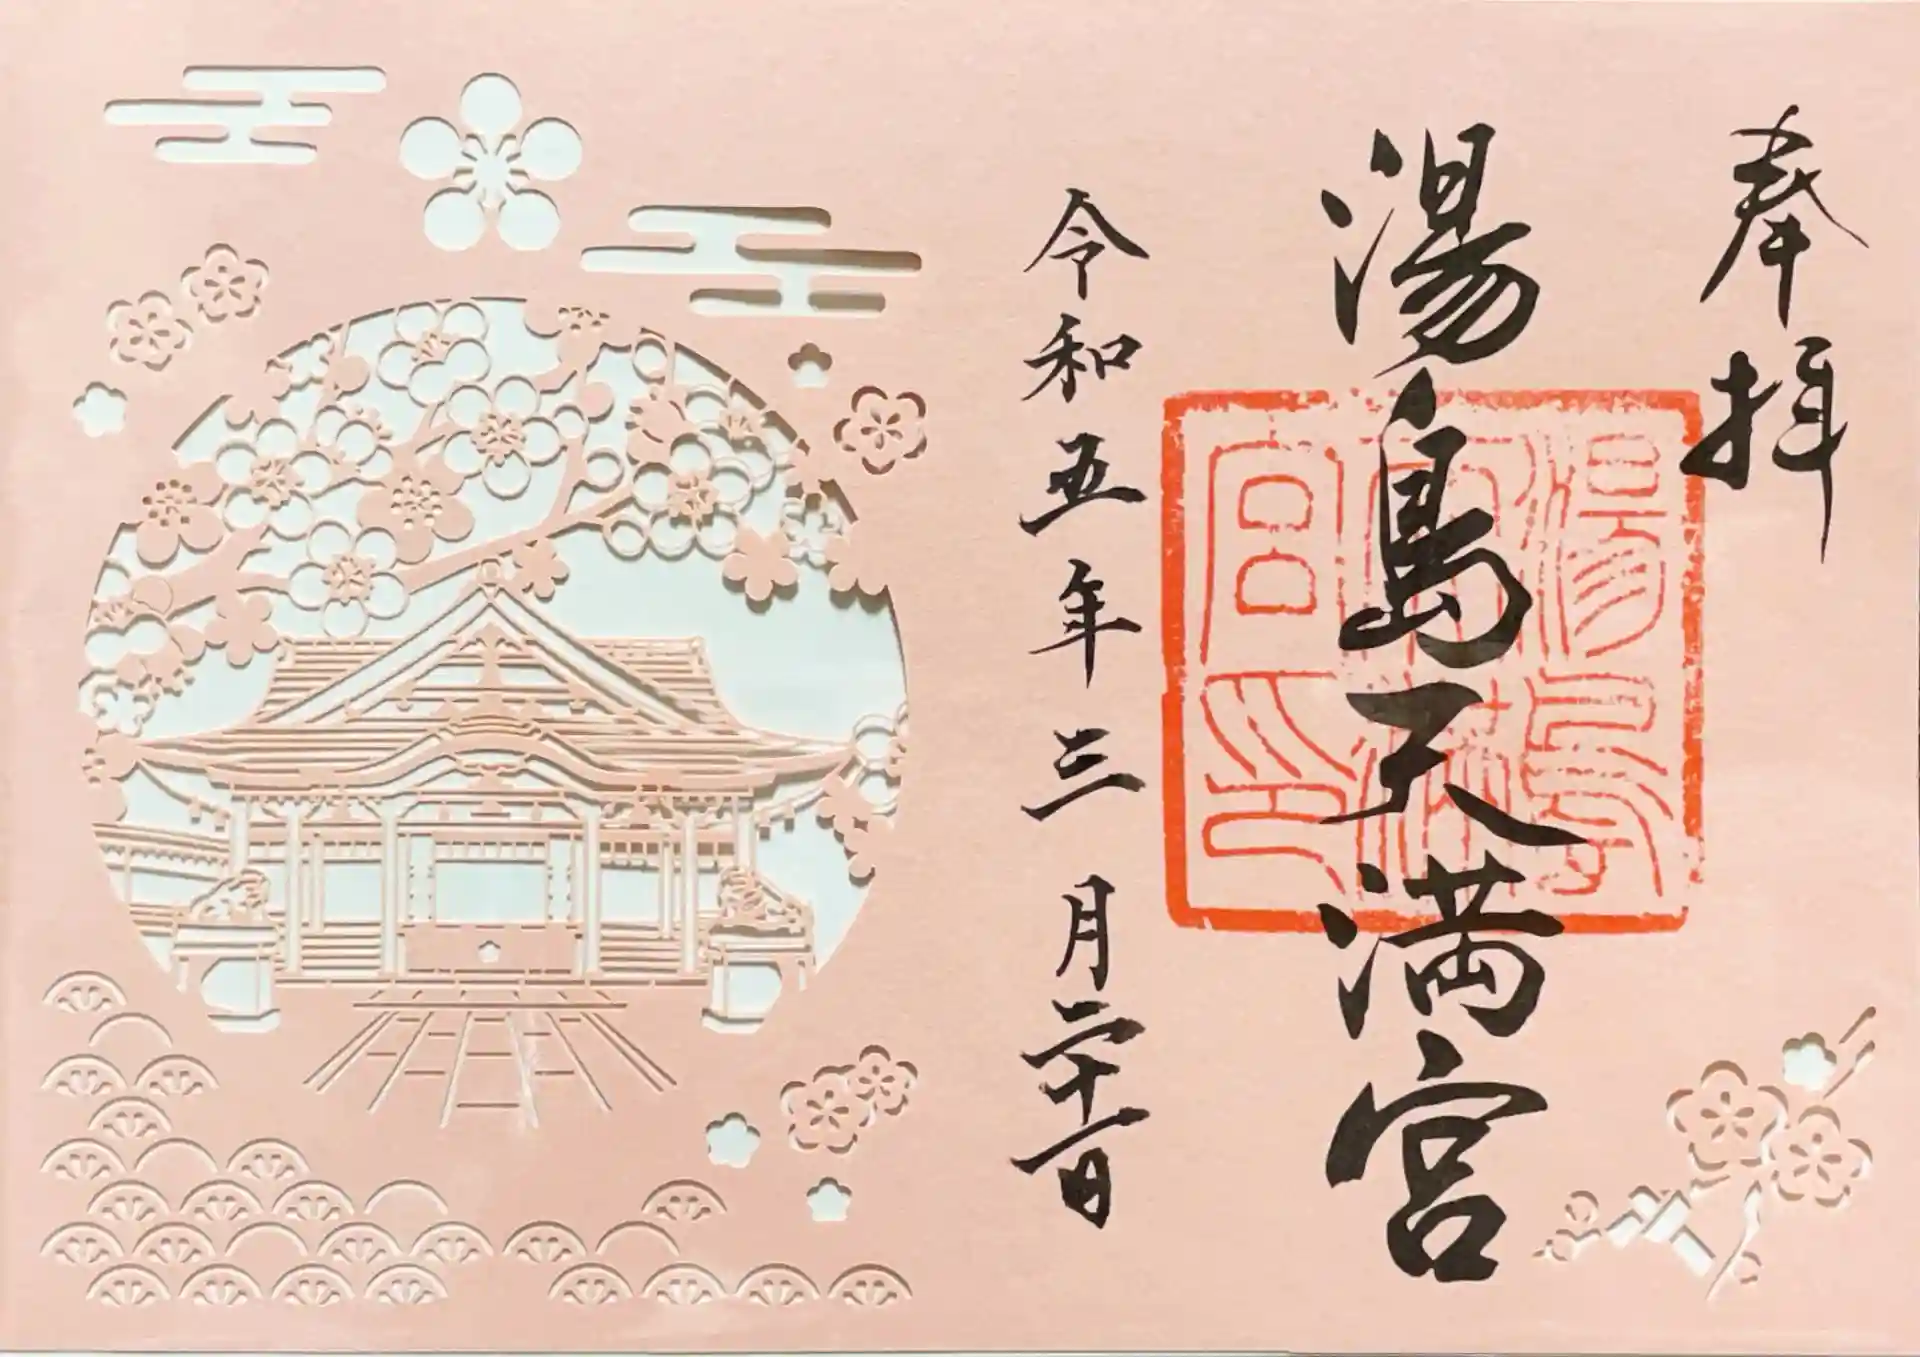 奉拝
湯島天満宮
湯島天神宮印
令和五年三月二十一日